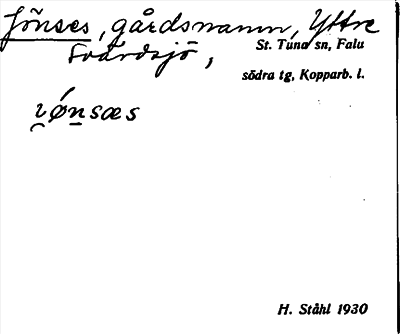 Jönses, gårdsnamn, Yttre
Svärdsjö,
St. Tuna sn, Falu
södra tg, Kopparb. l.
ɩǿnsæs
H. Ståhl 1930